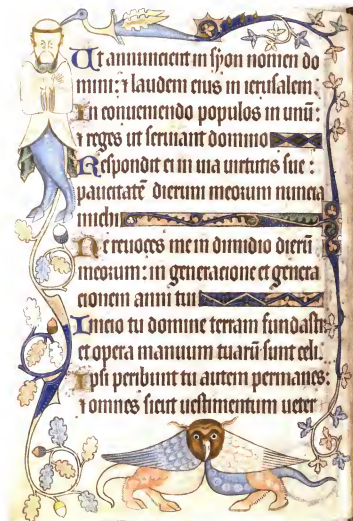 Ut annuncient in syon nomen do
mini: ⁊ laudem eius in ierusalem.
In conueniendo populos in unū:
⁊ reges ut seruiant domino
Respondit ei in uia uirtutis sue:
paucitatē dierum meorum nuncia
michi
Ne reuoces me in dimidio dierū
meorum: in generacione et genera
cionem anni tui
Inicio tu domine terram fundasti:
et opera manuum tuarū sunt celi.
Ipsi peribunt tu autem permanes:
⁊ omnes sicut uestimentum ueter